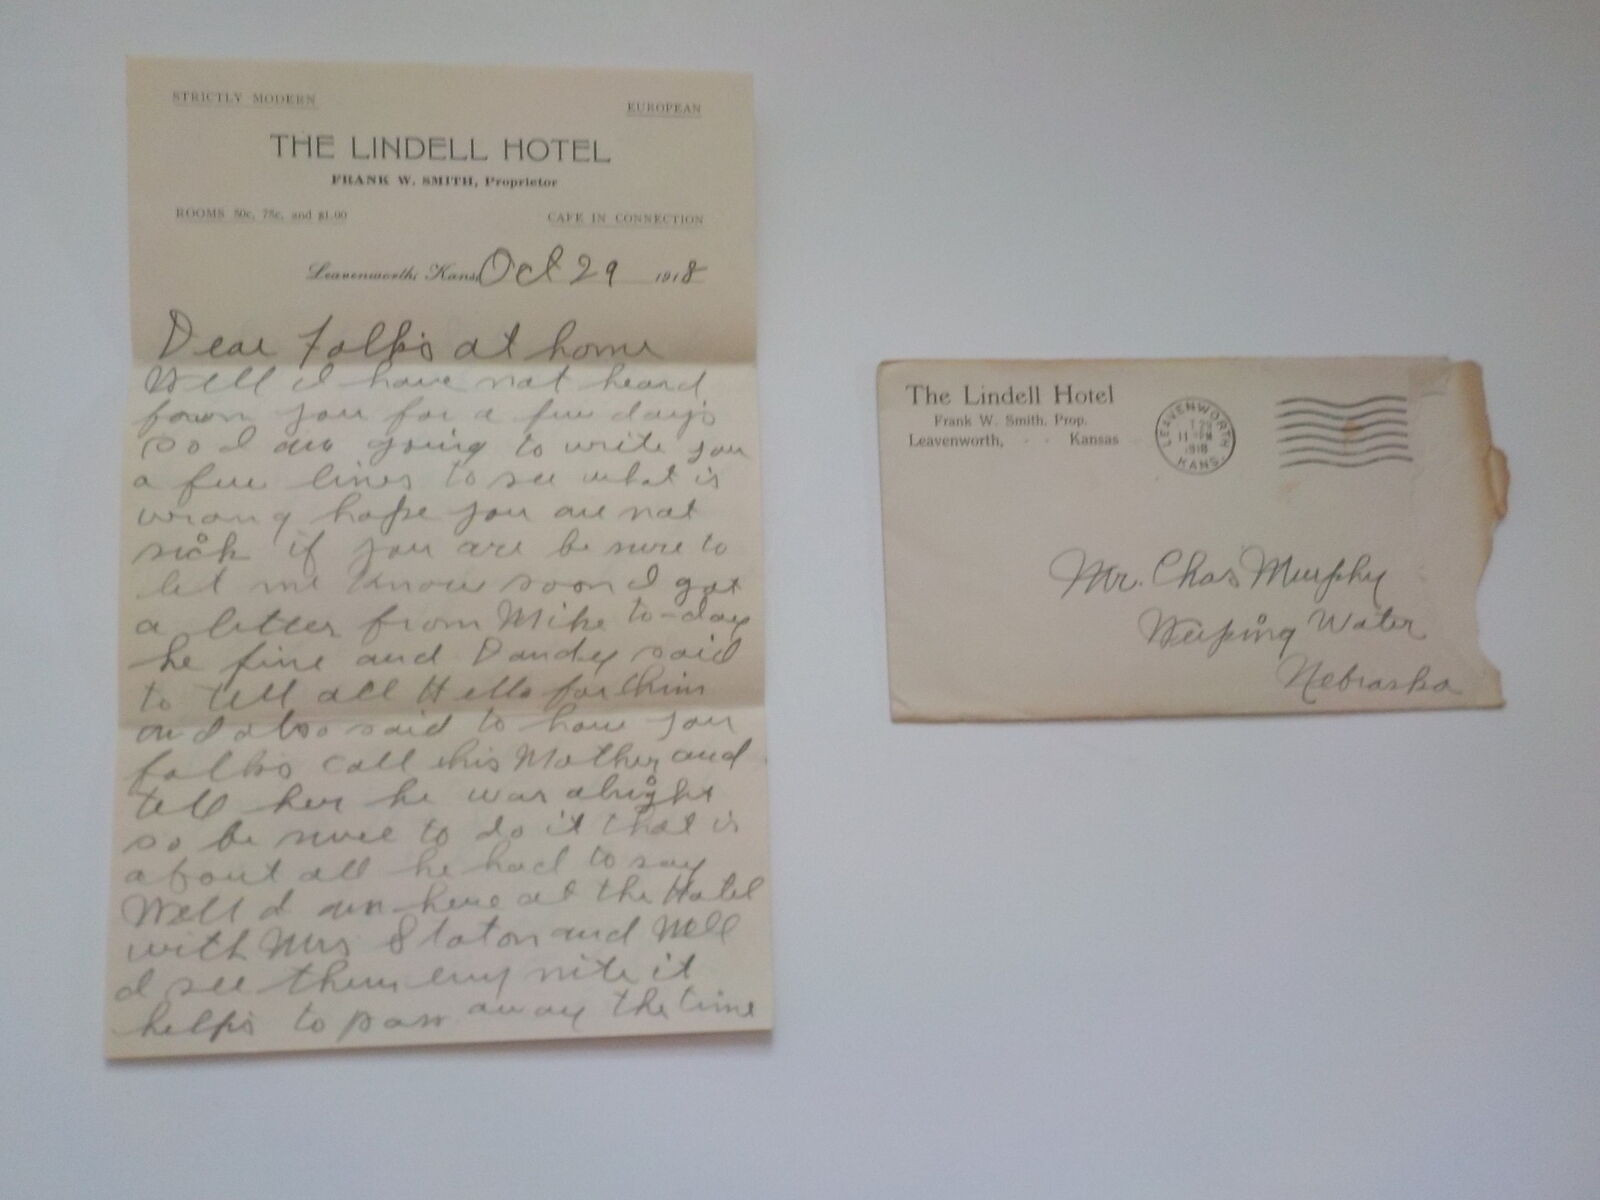 STRICTLY MODERN
EUROPEAN
THE LINDELL HOTEL
FRANK W. SMITH, Proprietor
ROOMS 50c, 75c, and $1.00
CAFE IN CONNECTION
Leavenworth, Kans. Oct 29 1918
Dear Folks at home
Well I have not heard
from you for a few days
so I am going to write you
a few lines to see what is
wrong hope you are not
sick if you are be sure to
let me know soon I got
a letter from Mike to-day
he fine and Dandy said
to tell all Hello for him
and also said to have you
folks call his Mother and
tell her he was alright
so be sure to do it that is
about all he had to say
Well I am here at the Hotel
with Mrs Staton and Nell
I see them every nite it
helps to pass away the time
The Lindell Hotel
Frank W. Smith, Prop.
Leavenworth, - - Kansas
LEAVENWORTH
T 29
11 PM
1918
KANS.
Mr. Chas Murphy
Weeping Water
Nebraska